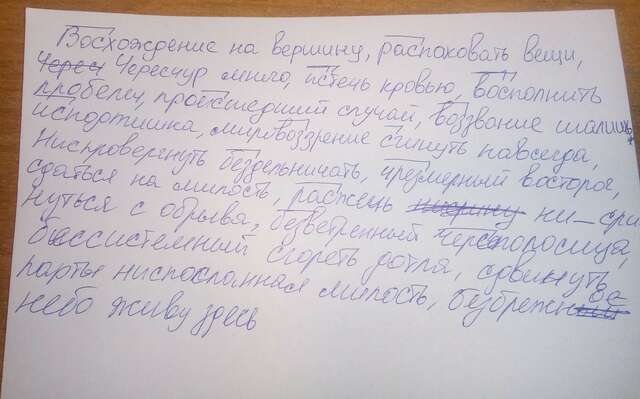 Восхождение на вершину, распаковать вещи,
Черес Чересчур много, истечь кровью, восполнить
пробелы, происшедший случай, воззвание
испортишка, мировоззрение сгинуть навсегда,
Ниспровергнуть бездельничать, чрезмерный восторг,
сдаться на милость, разжечь ни_сри
нуться с обрыва, безветренный черезполосица,
бессистемный сгореть дотла, сдвинуть
парты ниспосланная милость, безбрежн ое
небо живу здесь